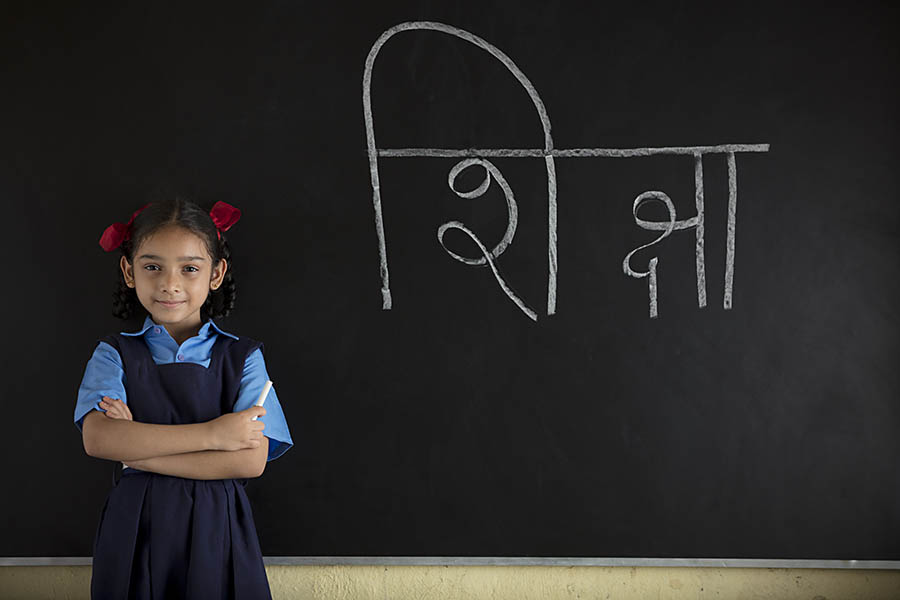 शिक्षा